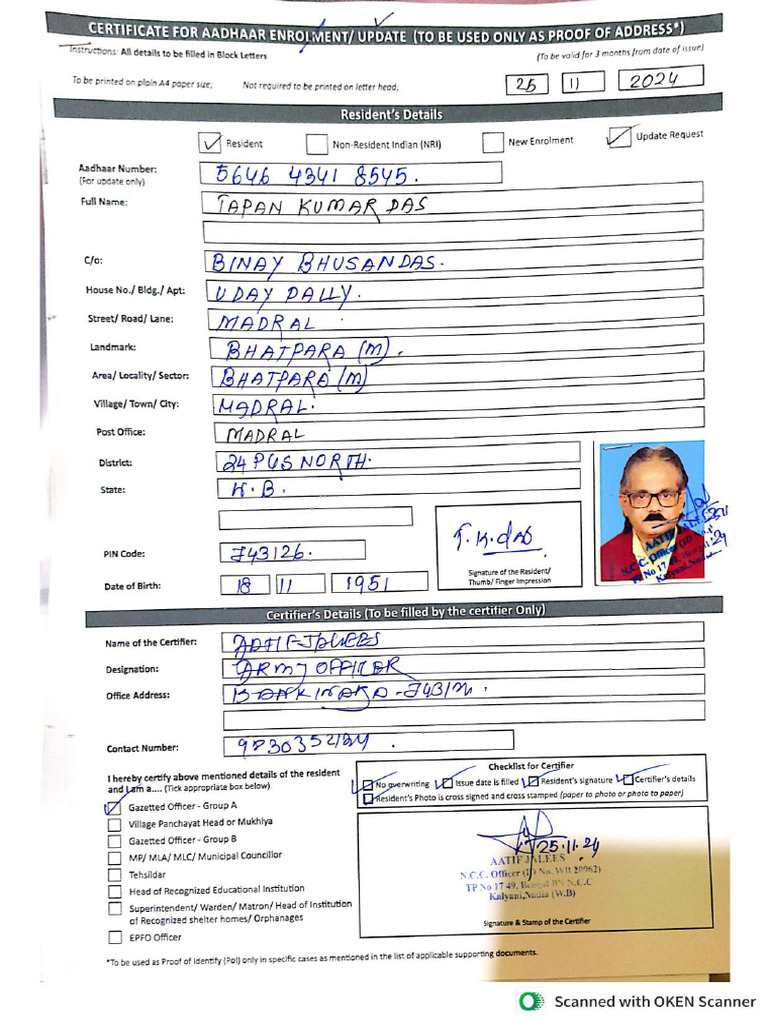 CERTIFICATE FOR AADHAAR ENROLMENT/ UPDATE (TO BE USED ONLY AS PROOF OF ADDRESS*)
Instructions: All details to be filled in Block Letters
(To be valid for 3 months from date of issue)
To be printed on plain A4 paper size; Not required to be printed on letter head;
25 11 2024
Resident's Details
Resident Non-Resident Indian (NRI) New Enrolment Update Request
Aadhaar Number: 5646 4341 8545.
(For update only)
Full Name: TAPAN KUMAR DAS
C/o: BINAY BHUSAN DAS.
House No./ Bldg./ Apt: UDAY PALLY.
Street/ Road/ Lane: MADRAL
Landmark: BHATPARA (M).
Area/ Locality/ Sector: BHATPARA (M)
Village/ Town/ City: MADRAL.
Post Office: MADRAL
District: 24 PGS NORTH.
State: W.B.
PIN Code: 743126.
T.K. das
Signature of the Resident/
Thumb/ Finger Impression
Date of Birth: 18 11 1951
AATIF JALEES
N.C.C. Officer
TP No 17 49,
Kalyani, Nadia
Certifier's Details (To be filled by the certifier Only)
Name of the Certifier: AATIF JALEES
Designation: ARMY OFFICER
Office Address:
Contact Number:
I hereby certify above mentioned details of the resident
and I am a.... (Tick appropriate box below)
Gazetted Officer - Group A
Village Panchayat Head or Mukhiya
Gazetted Officer - Group B
MP/ MLA/ MLC/ Municipal Councillor
Tehsildar
Head of Recognized Educational Institution
Superintendent/ Warden/ Matron/ Head of Institution
of Recognized shelter homes/ Orphanages
EPFO Officer
Checklist for Certifier
No overwriting Issue date is filled Resident's signature Certifier's details
Resident's Photo is cross signed and cross stamped (paper to photo or photo to paper)
25.11.24
AATIF JALEES
N.C.C. Officer (ID No. WB 20962)
TP No 17 49, Bengal BN N.C.C
Kalyani, Nadia (W.B)
Signature & Stamp of the Certifier
*To be used as Proof of Identify (PoI) only in specific cases as mentioned in the list of applicable supporting documents.
Scanned with OKEN Scanner